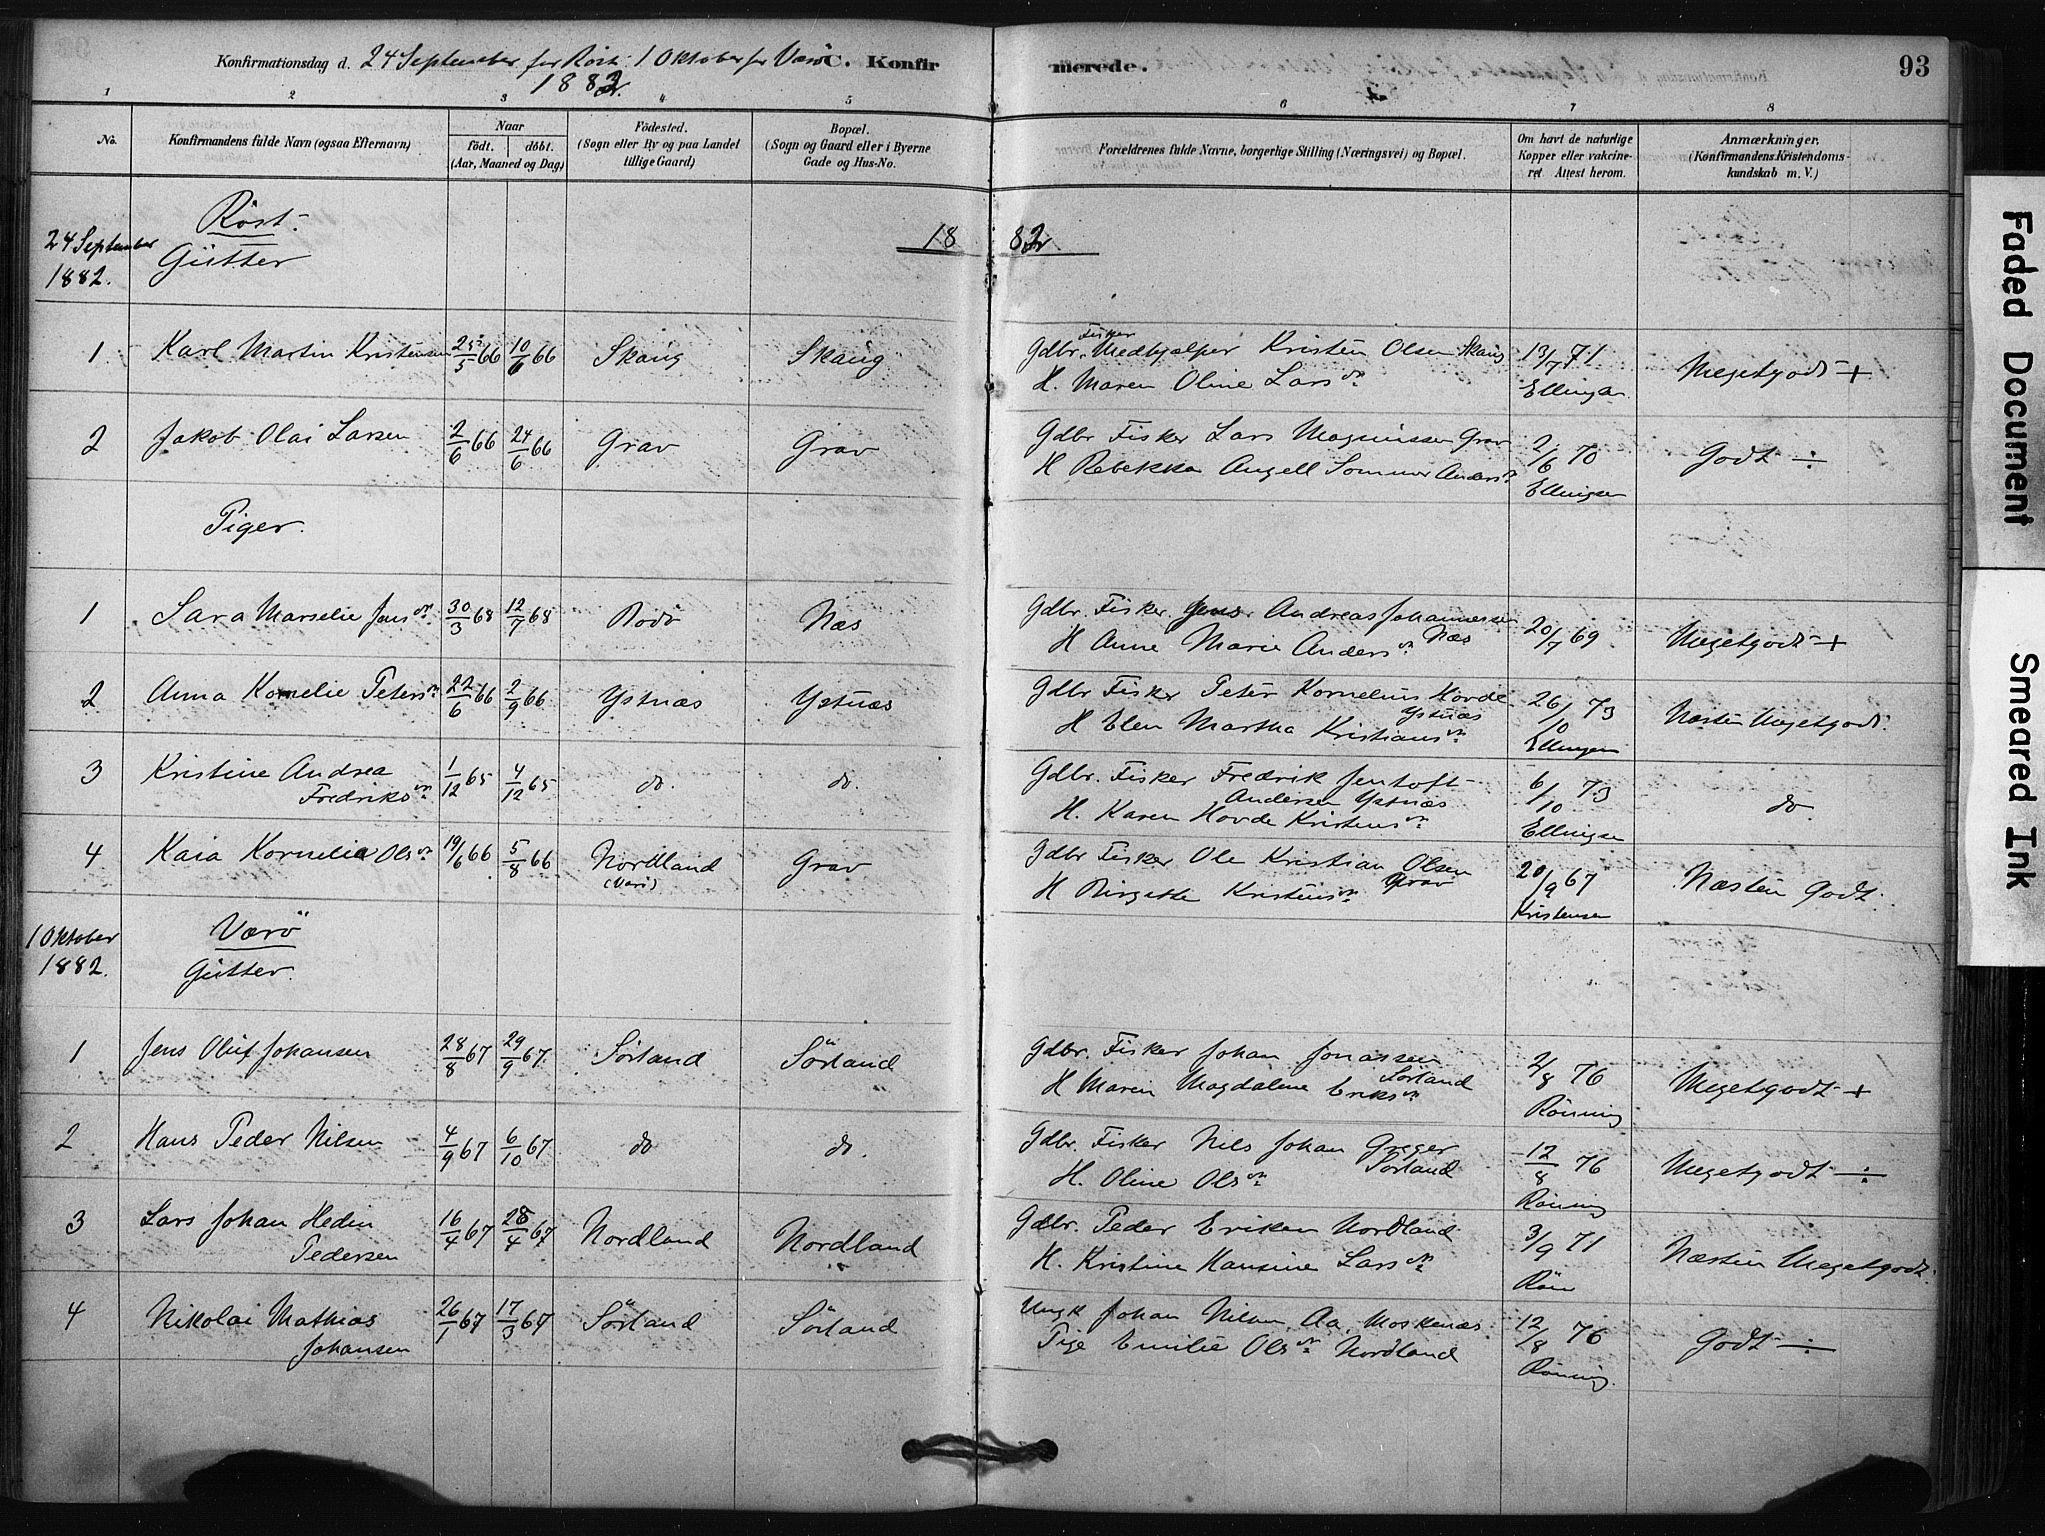 Konfirmationsdag d. 24 September for Röst. 1 Oktober for Værö C. Konfirmerede. 93
1882.
1 2 3 4 5 6 7 8
No. Konfirmandens fulde Navn (ogsaa Efternavn) Naar födt. döbt. (Aar, Maaned og Dag) Födested. (Sogn eller By og paa Landet tillige Gaard) Bopæl. (Sogn og Gaard eller i Byerne Gade og Hus-No. Forældrenes fulde Navne, borgerlige Stilling (Næringsvei) og Bopæl. Om havt de naturlige Kopper eller vakcineret Attest herom. Anmærkninger. (Konfirmandens Kristendomskundskab m. V.)
Röst.
24 September 1882. Gutter 1882
1. Karl Martin Kristensen 25/5 66 10/6 66 Skaug Skaug Gdbr. Fisker Medhjælper Kristen Olsen Skaug 13/7 71
H. Maren Oline Larsdr Ellingsen Megetgodt +
2 Jakob Olai Larsen 2/6 66 24/6 66 Grav Grav Gdbr Fisker Lars Magnussen Grav 2/6 70
H Rebekka Angell Sommer Andersdr Ellingsen Godt ÷
Piger.
1 Sara Marselie Jensdr 30/3 68 12/7 68 Bodö Næs Gdbr. Fisker Jens Andreas Johannessen
H Anne Marie Andersdr. Næs 20/7 69 Megetgodt +
2 Anna Kornelie Petersdr 22/6 66 2/9 66 Ystnæs Ystnæs Gdbr Fisker Peter Kornelius Hovde Ystnæs 26/10 73
H Elen Martha Kristiansdr Ellingsen Næsten Megetgodt.
3 Kristine Andrea Fredriksdr 1/12 65 4/12 65 do. do. Gdbr. Fisker Fredrik Jentoft Andersen Ystnæs 6/10 73
H. Karen Hovde Kristensdr Ellingsen do.
4 Kaia Kornelia Olsdr 19/6 66 5/8 66 Nordland Grav Gdbr Fisker Ole Kristian Olsen Grav 20/9 67
H Birgitte Kristensdr Kristensen Næsten Godt.
1 Oktober 1882. Værö
Gutter.
1 Jens Oluf Johansen 28/8 67 29/9 67. Sörland Sörland Gdbr. Fisker Johan Jonassen Sörland 2/8 76
H Maren Magdalene Eriksdr Rönning Megetgodt +
2 Hans Peder Nilsen 4/9 67 6/10 67 do do. Gdbr. Fisker Nils Johan Greger Sörland 12/8 76
H. Oline Olsdr Rönning Megetgodt ÷
3 Lars Johan Hedin Pedersen 16/4 67 28/4 67 Nordland Nordland Gdbr. Peder Eriksen Nordland 3/9 71
H. Kristine Hansine Larsdr Rön Næsten Megetgodt.
4 Nikolai Mathias Johansen 26/1 67 17/3 67 Sörland Sörland Ungk Johan Nilsen, Aa, Moskenæs. 12/8 76
Pige Emilie Olsdr Nordland Rönning. Godt ÷
Faded Document
Smeared Ink